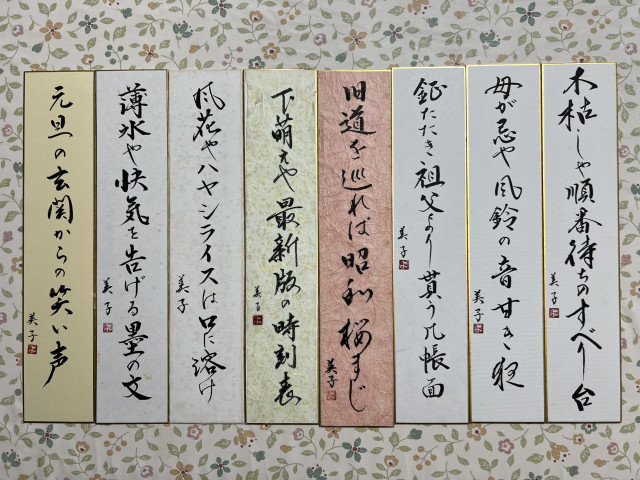 木枯しや順番待ちのすべり台
美子
母が忌や風鈴の音甘き夜
美子
鉦たたき祖父より貰う几帳面
美子
旧道を巡れば昭和桜まじ
美子
下萌えや最新版の時刻表
美子
風花やハヤシライスは口に溶け
美子
薄氷や快気を告げる墨の文
美子
元旦の玄関からの笑い声
美子